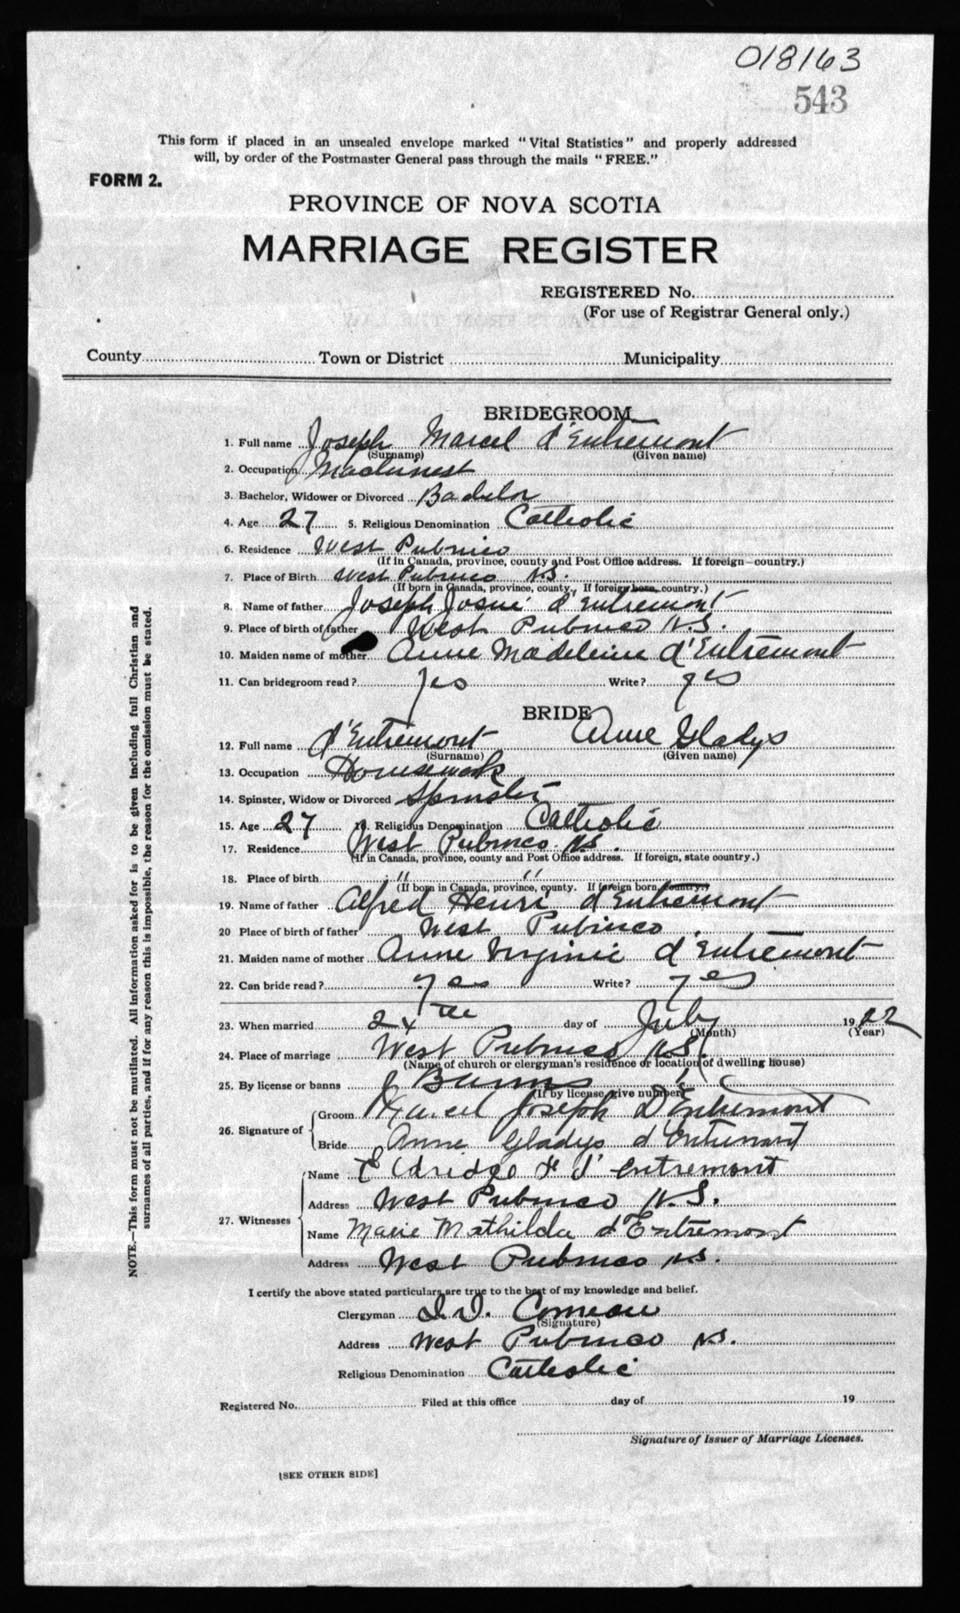 018163
543
This form if placed in an unsealed envelope marked "Vital Statistics" and properly addressed
will, by order of the Postmaster General pass through the mails "FREE."
FORM 2.
PROVINCE OF NOVA SCOTIA
MARRIAGE REGISTER
REGISTERED No.
(For use of Registrar General only.)
County Town or District Municipality
BRIDEGROOM
1. Full name Joseph Marcel d'Entremont
(Surname) (Given name)
2. Occupation Machinest
3. Bachelor, Widower or Divorced Bachelor
4. Age 27 5. Religious Denomination Catholic
6. Residence West Pubnico
(If in Canada, province, county and Post Office address. If foreign—country.)
7. Place of Birth West Pubnico N.S.
(If born in Canada, province, county., If foreign born, country.)
8. Name of father Joseph Josué d'Entremont
9. Place of birth of father West Pubnico N.S.
10. Maiden name of mother Anne Madeleine d'Entremont
11. Can bridegroom read? Yes Write? yes
BRIDE
12. Full name d'Entremont Anne Gladys
(Surname) (Given name)
13. Occupation Housework
14. Spinster, Widow or Divorced Spinster
15. Age 27 16. Religious Denomination Catholic
17. Residence West Pubnico N.S.
(If in Canada, province, county and Post Office address. If foreign, state country.)
18. Place of birth " "
(If born in Canada, province, county. If foreign born, country.)
19. Name of father Alfred Henri d'Entremont
20 Place of birth of father West Pubnico
21. Maiden name of mother Anne Virginie d'Entremont
22. Can bride read? yes Write? yes
23. When married 24th day of July 1922
(Month) (Year)
24. Place of marriage West Pubnico N.S.
(Name of church or clergyman's residence or location of dwelling house)
25. By license or banns Banns
(If by license, give number)
26. Signature of Groom Marcel Joseph D'Entremont
Bride Anne Gladys d'Entremont
27. Witnesses Name Eldridge H d'Entremont
Address West Pubnico N.S.
Name Marie Mathilda d'Entremont
Address West Pubnico N.S.
I certify the above stated particulars are true to the best of my knowledge and belief.
Clergyman Comeau
(Signature)
Address West Pubnico N.S.
Religious Denomination Catholic
Registered No. Filed at this office day of 19
Signature of Issuer of Marriage Licenses.
[SEE OTHER SIDE]
NOTE.—This form must not be mutilated. All information asked for is to be given including full Christian and
surnames of all parties, and if for any reason this is impossible, the reason for the omission must be stated.